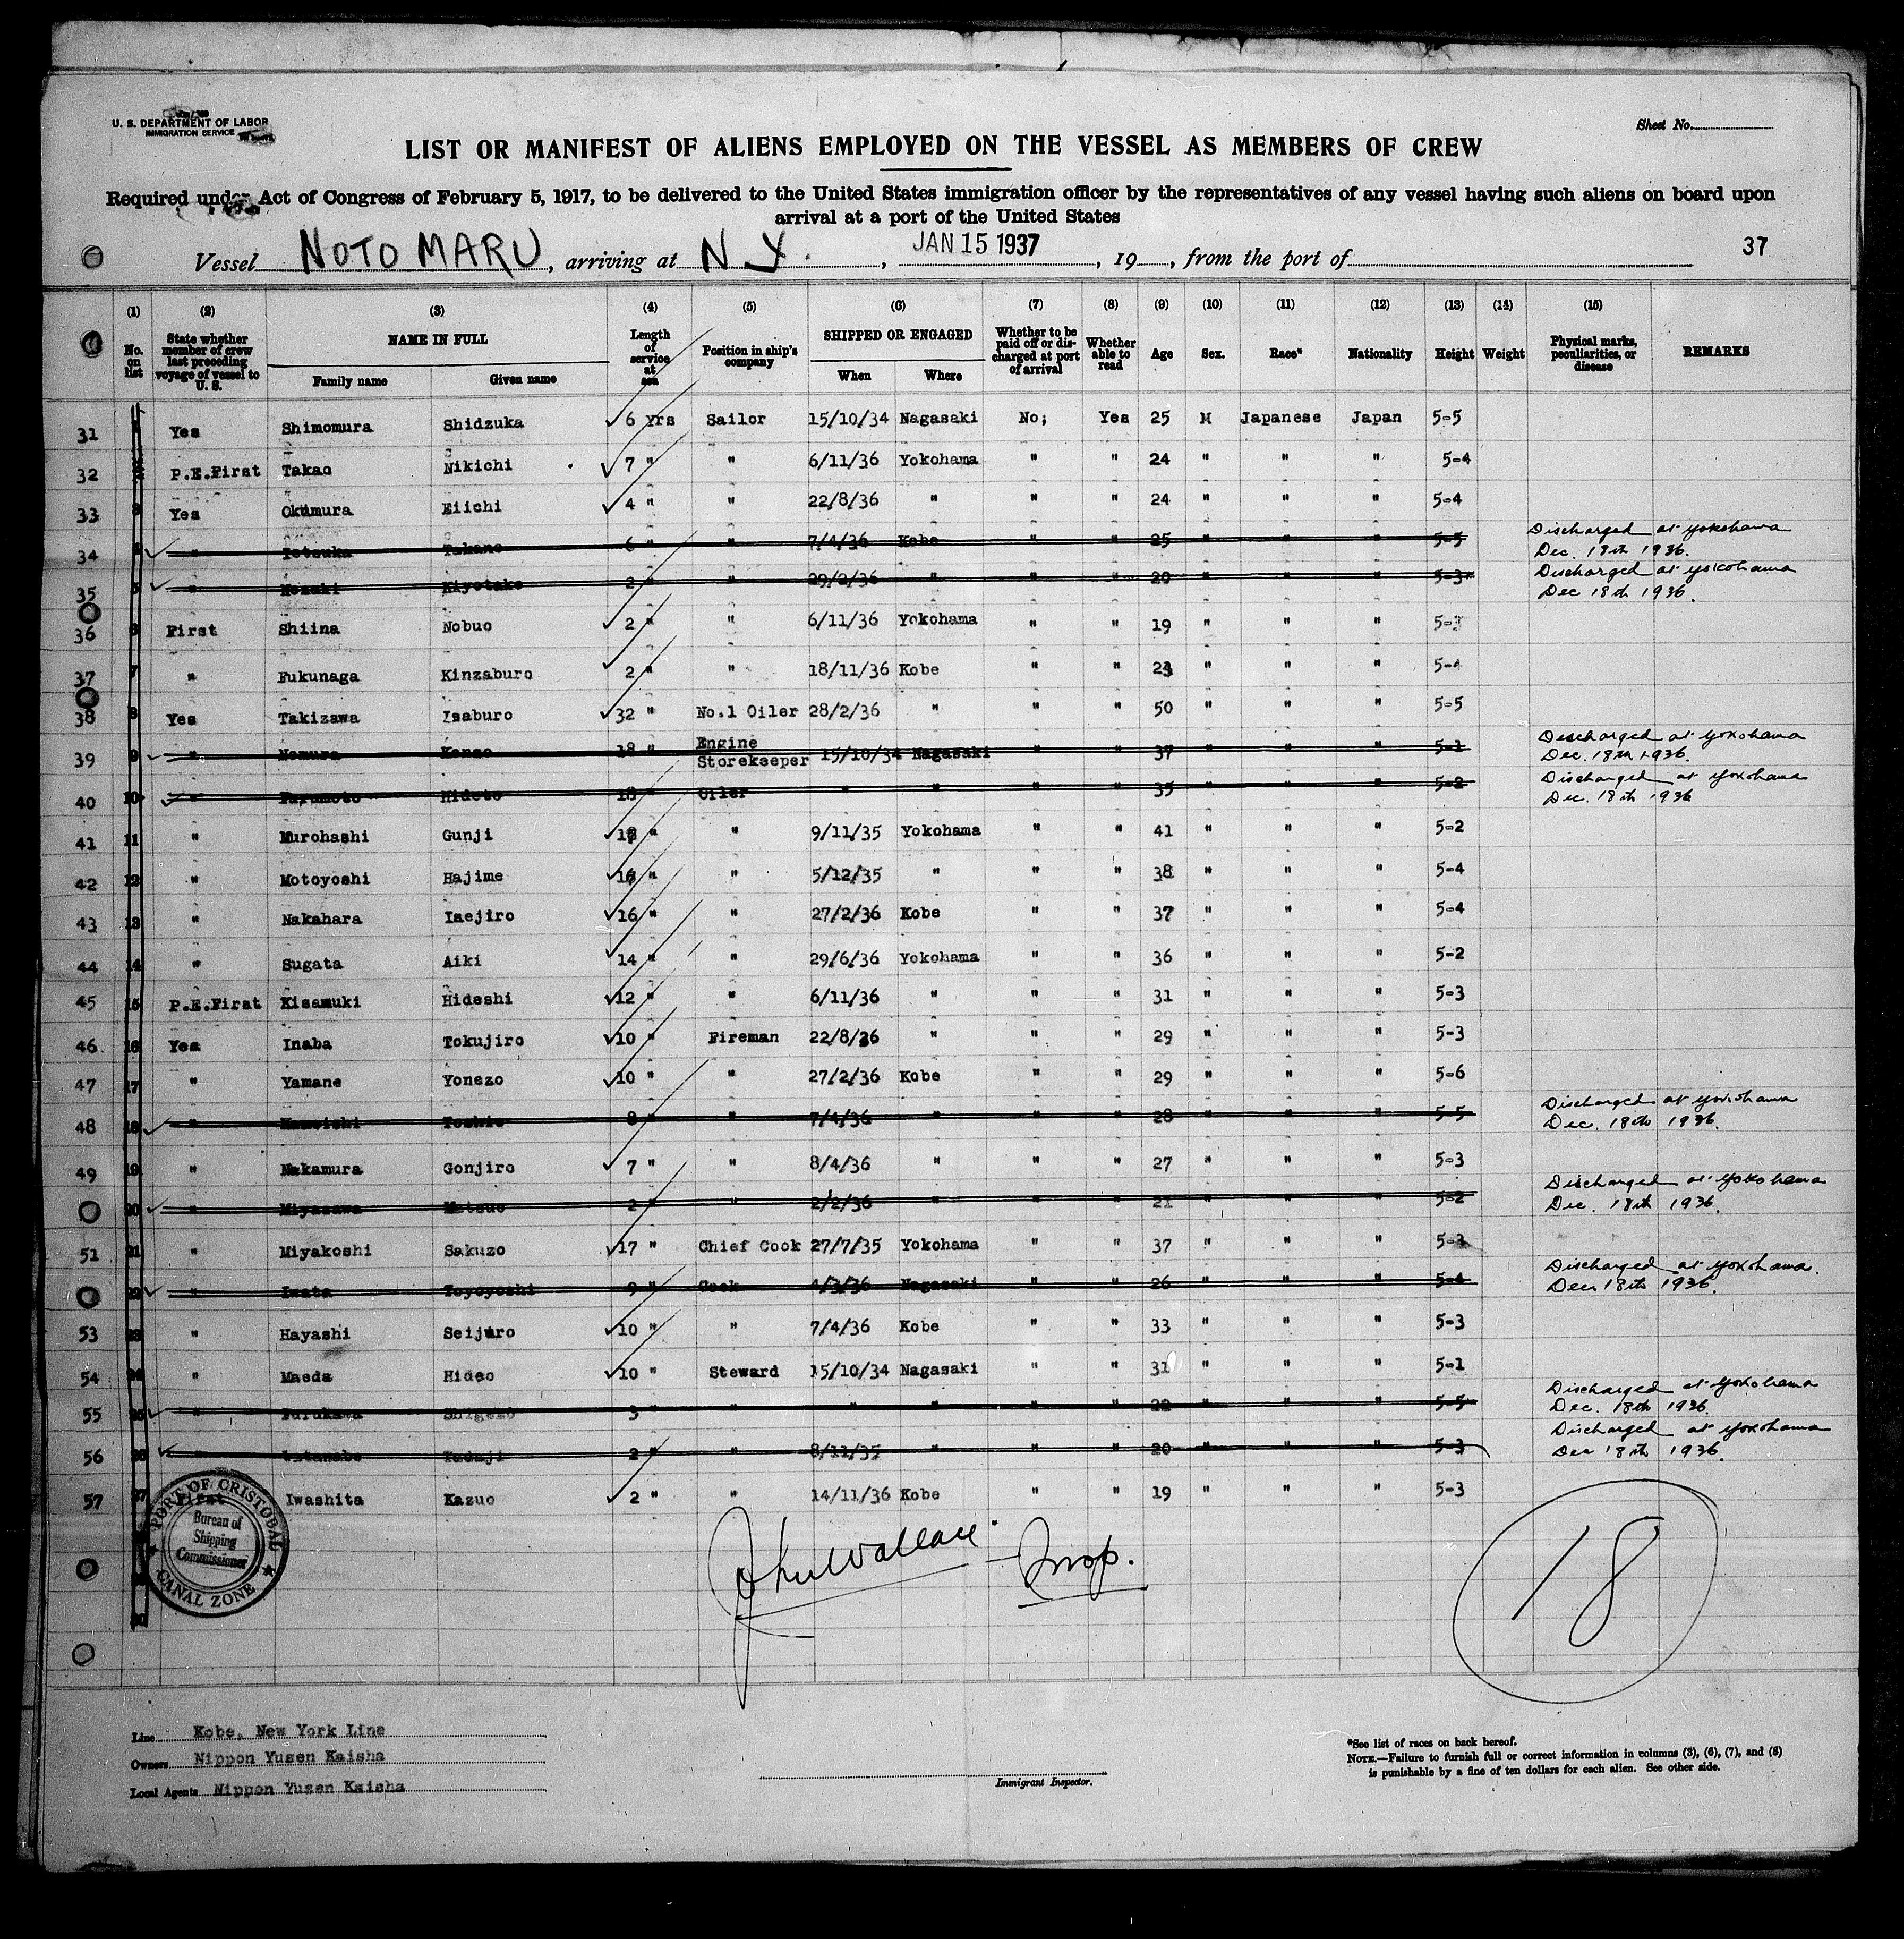 U. S. DEPARTMENT OF LABOR
IMMIGRATION SERVICE
Sheet No.
LIST OR MANIFEST OF ALIENS EMPLOYED ON THE VESSEL AS MEMBERS OF CREW
Required under Act of Congress of February 5, 1917, to be delivered to the United States immigration officer by the representatives of any vessel having such aliens on board upon
arrival at a port of the United States
Vessel NOTO MARU, arriving at N Y., JAN 15 1937, 19, from the port of 37
(1) (2) (3) (4) (5) (6) (7) (8) (9) (10) (11) (12) (13) (14) (15)
No. on list State whether member of crew last preceding voyage of vessel to U. S. NAME IN FULL Family name Given name Length of service at sea Position in ship's company SHIPPED OR ENGAGED When Where Whether to be paid off or discharged at port of arrival Whether able to read Age Sex. Race* Nationality Height Weight Physical marks, peculiarities, or disease REMARKS
31 1 Yes Shimomura Shidzuka 6 yrs Sailor 15/10/34 Nagasaki No; Yes 25 M Japanese Japan 5-5
32 P.E.First Takao Nikichi 7 " " 6/11/36 Yokohama " " 24 " " " 5-4
33 3 Yes Okumura Eiichi 4 " " 22/8/36 " " " 24 " " " 5-4
34 4 " 6 " " 7/4/36 Kobe " " 25 " " " 5-5 Discharged at Yokohama Dec. 18th 1936.
35 5 " Kiyotake 2 " " 29/2/36 " " " 20 " " " 5-3 Discharged at Yokohama Dec 18th 1936.
36 6 First Shiina Nobuo 2 " " 6/11/36 Yokohama " " 19 " " " 5-3
37 7 " Fukunaga Kinzaburo 2 " " 18/11/36 Kobe " " 23 " " " 5-4
38 8 Yes Takizawa Isaburo 32 " No.1 Oiler 28/2/36 " " " 50 " " " 5-5
39 9 " Nomura 18 " Engine Storekeeper 15/10/34 Nagasaki " " 37 " " " 5-1 Discharged at Yokohama Dec. 18th 1936.
40 10 " Furumoto Hideto 18 " Oiler " " " " 35 " " " 5-2 Discharged at Yokohama Dec. 18th 1936
41 11 " Murohashi Gunji " " 9/11/35 Yokohama " " 41 " " " 5-2
42 12 " Motoyoshi Hajime 16 " " 5/12/35 " " " 38 " " " 5-4
43 13 " Nakahara Isejiro 16 " " 27/2/36 Kobe " " 37 " " " 5-4
44 14 " Sugata Aiki 14 " " 29/6/36 Yokohama " " 36 " " " 5-2
45 15 P.E.First Kisamuki Hideshi 12 " " 6/11/36 " " " 31 " " " 5-3
46 16 Yes Inaba Tokujiro 10 " Fireman 22/8/36 " " " 29 " " " 5-3
47 17 " Yamane Yonezo 10 " " 27/2/36 Kobe " " 29 " " " 5-6
48 18 " Toshio 8 " " 7/4/36 " " " 28 " " " 5-5 Discharged at Yokohama Dec. 18th 1936.
49 19 " Nakamura Gonjiro 7 " " 8/4/36 " " " 27 " " " 5-3
20 " Miyazawa Matsuo 2 " " 2/2/36 " " " 21 " " " 5-2 Discharged at Yokohama Dec. 18th 1936.
51 21 " Miyakoshi Sakuzo 17 " Chief Cook 27/7/35 Yokohama " " 37 " " " 5-3
22 " Iwata Toyoyoshi 9 " Cook 4/3/36 Nagasaki " " 26 " " " 5-4 Discharged at Yokohama. Dec 18th 1936.
53 23 " Hayashi Seijuro 10 " " 7/4/36 Kobe " " 33 " " " 5-3
54 24 " Maeda Hideo 10 " Steward 15/10/34 Nagasaki " " 31 " " " 5-1
55 25 " Furukawa 3 " " " " " " " " " 5-5 Discharged at Yokohama Dec. 18th 1936.
56 26 " Watanabe Tadaji 2 " " 8/11/35 " " " 20 " " " 5-3 Discharged at Yokohama Dec 18th 1936.
57 27 First Iwashita Kazuo 2 " " 14/11/36 Kobe " " 19 " " " 5-3
PORT OF CRISTOBAL
Bureau of
Shipping
Commissioner
CANAL ZONE
John Wallace - Insp.
18
30
Line Kobe, New York Line
Owners Nippon Yusen Kaisha
Local Agents Nippon Yusen Kaisha
Immigrant Inspector.
*See list of races on back hereof.
NOTE.—Failure to furnish full or correct information in columns (3), (6), (7), and (8)
is punishable by a fine of ten dollars for each alien. See other side.